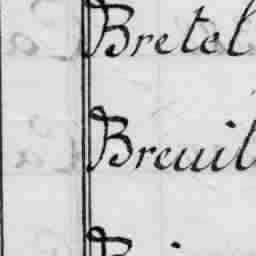 Bretel
Breuil